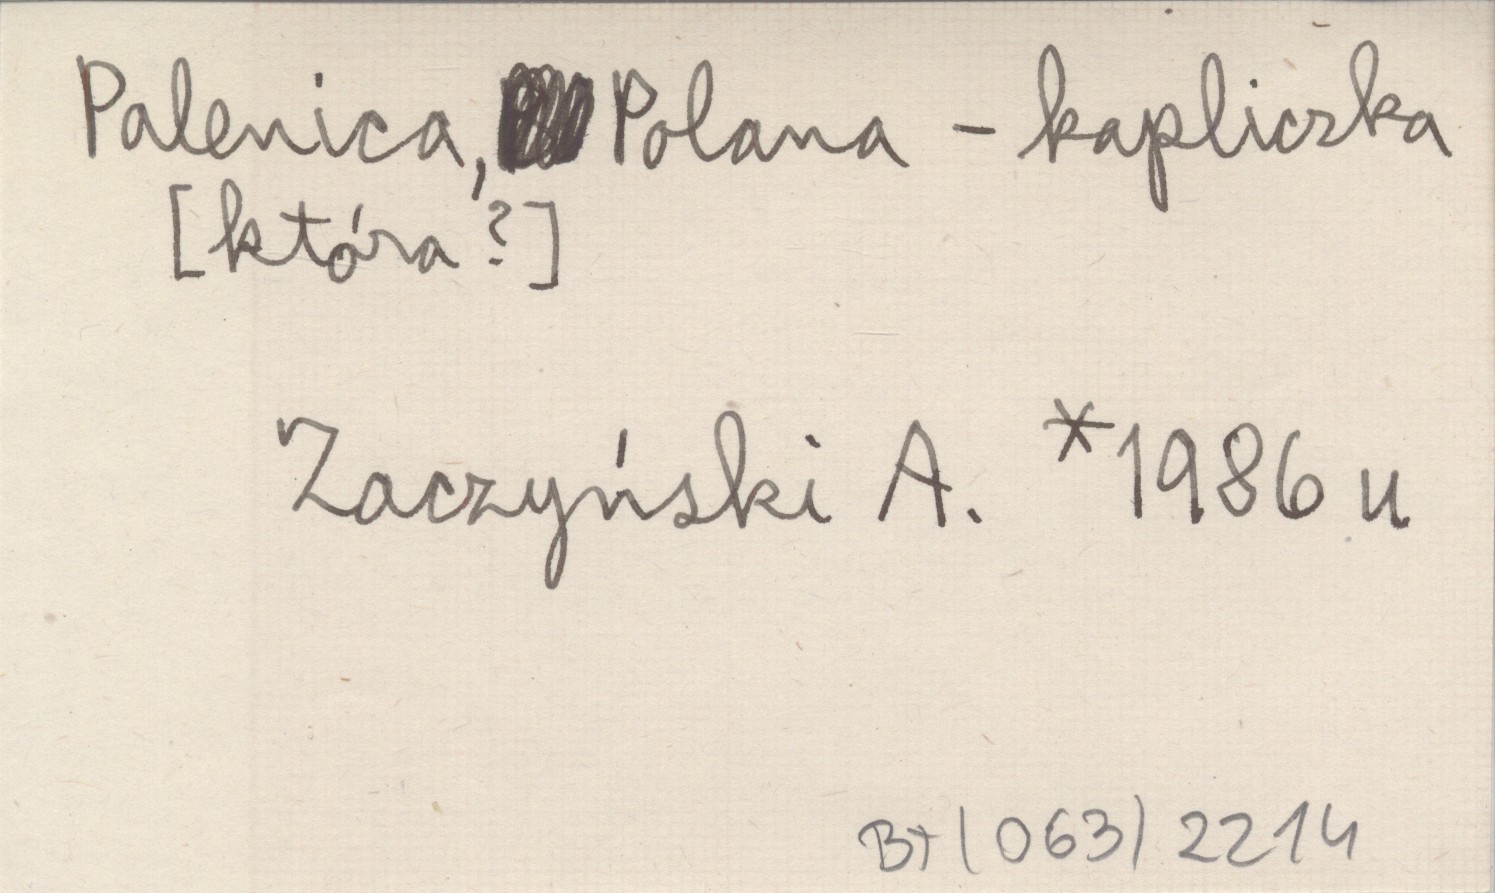 Palenica, Polana - kapliczka
[która?]
Zaczyński A. *1986 u
BT (063) 2214